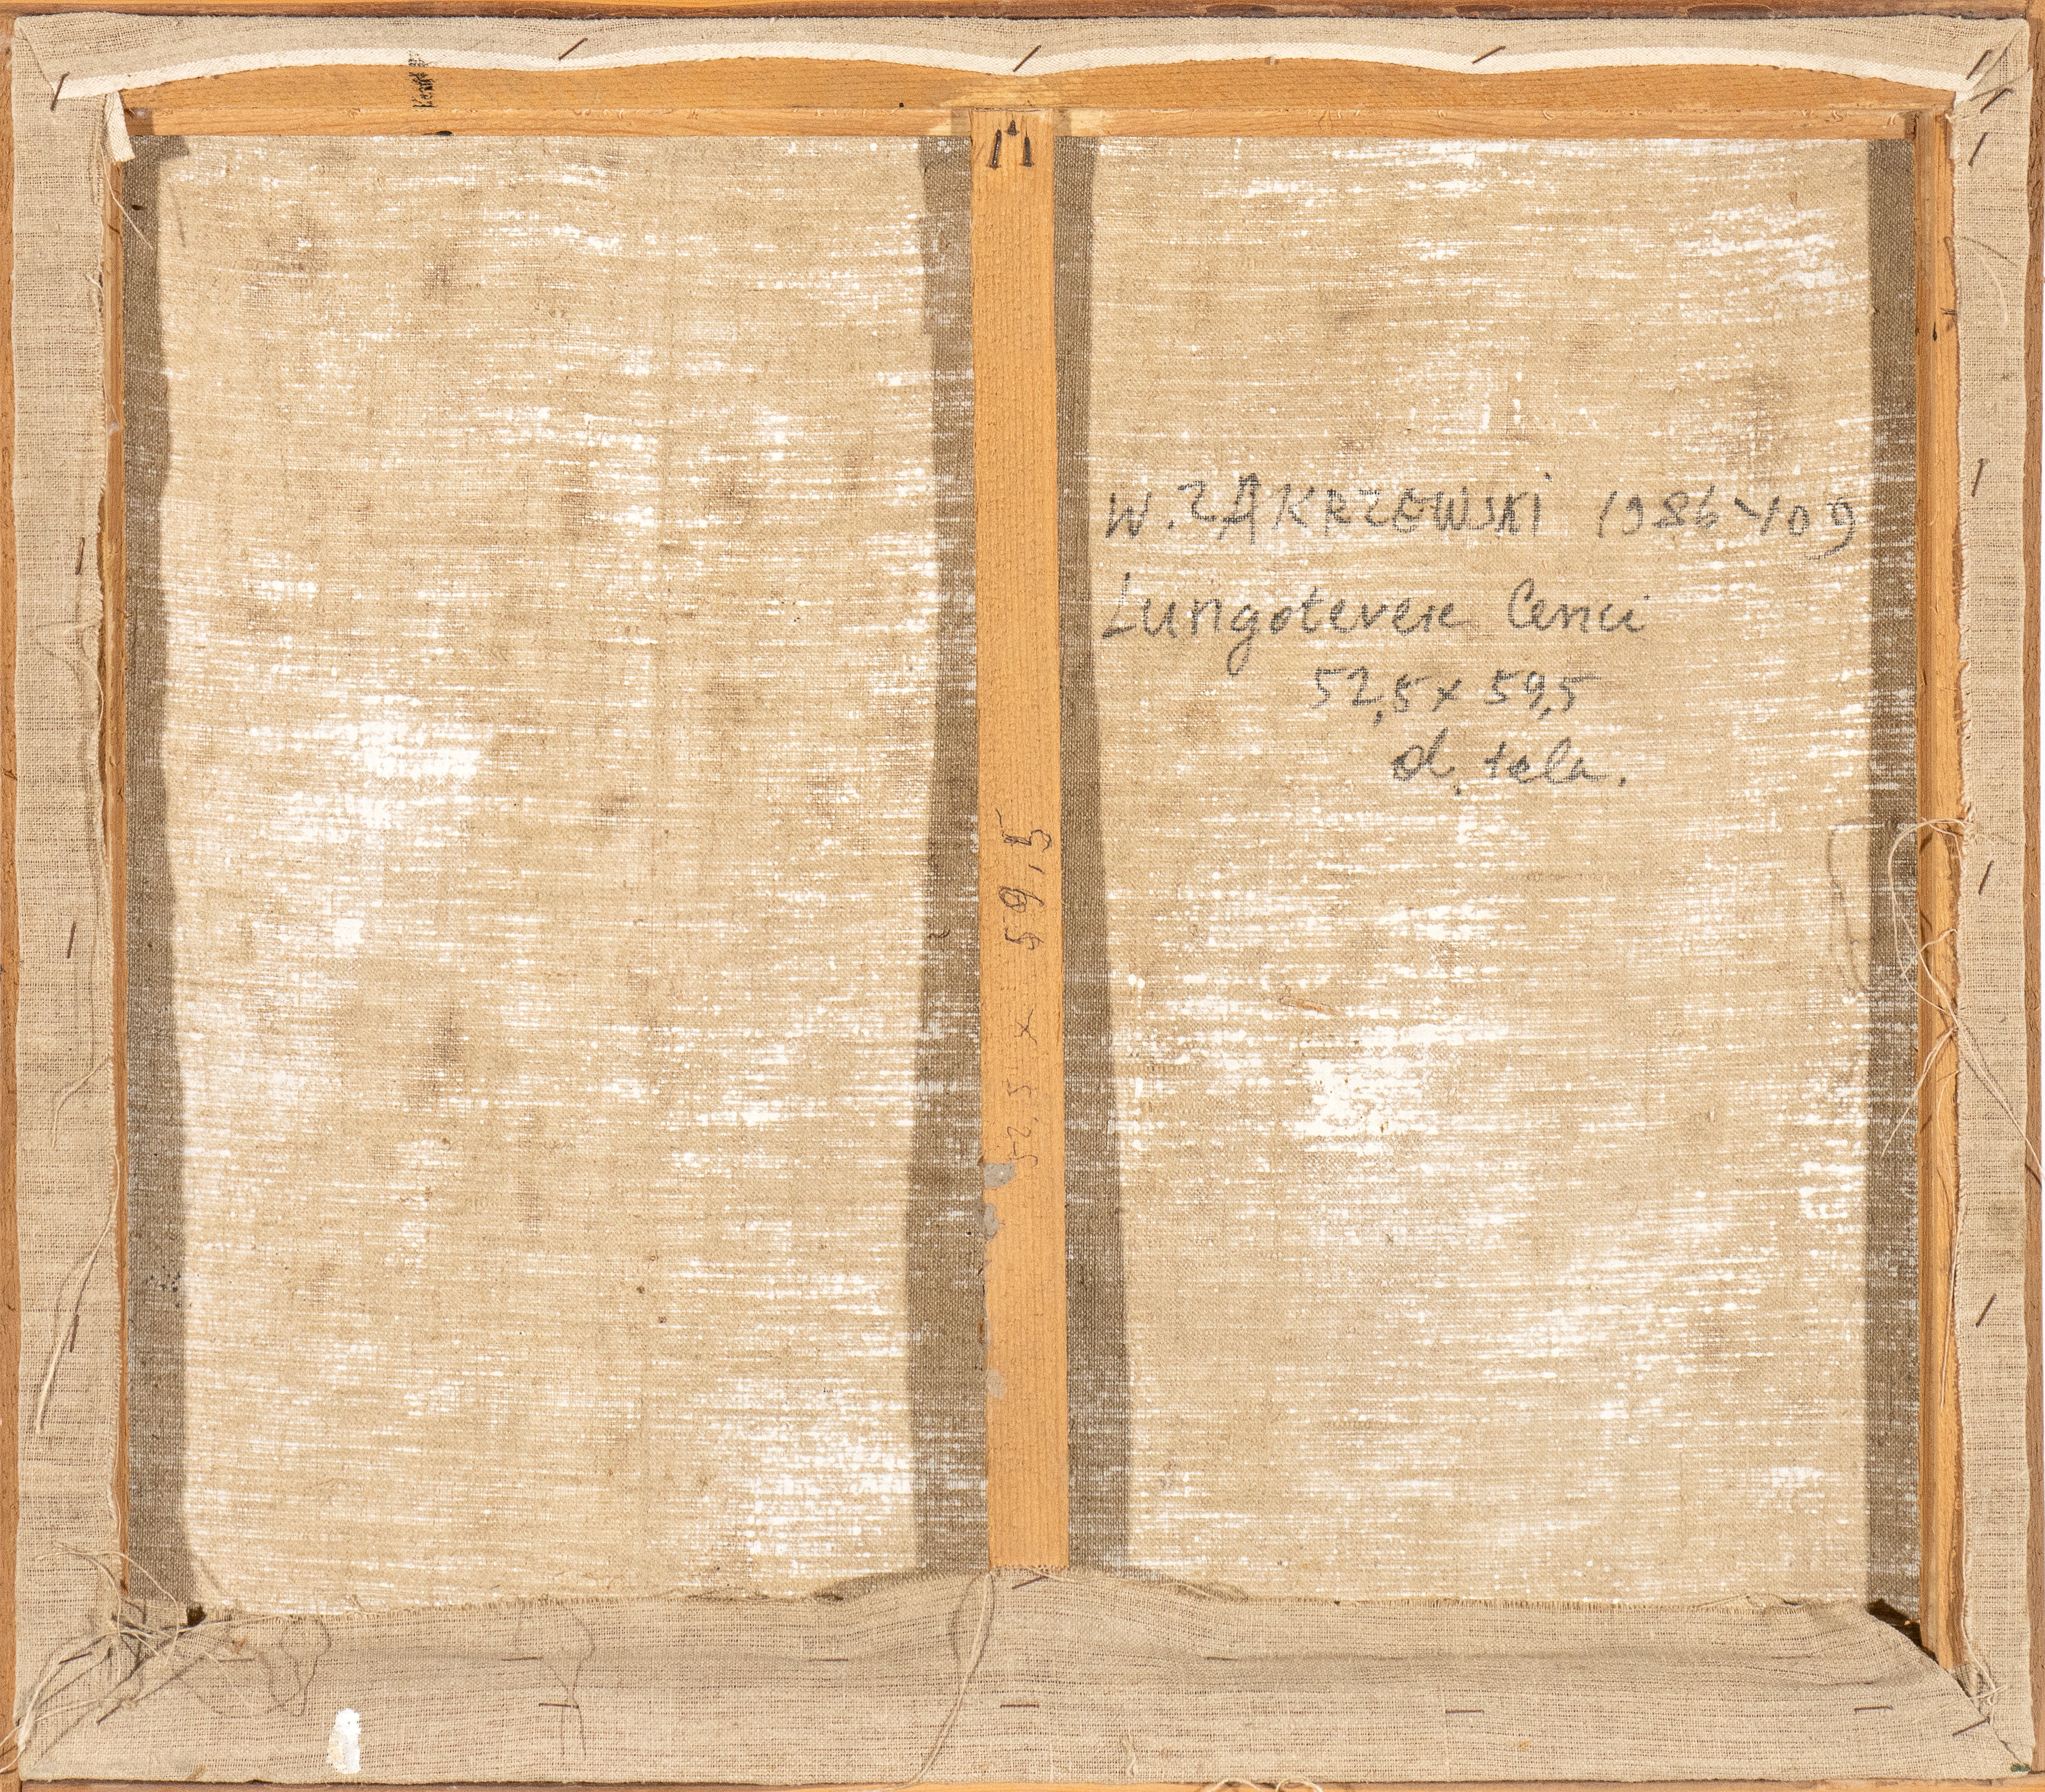 W. ZAKRZEWSKI 1986 109
Lungotevere Cenci
52,5 x 59,5
ol. tela.
52,5 x 59,5